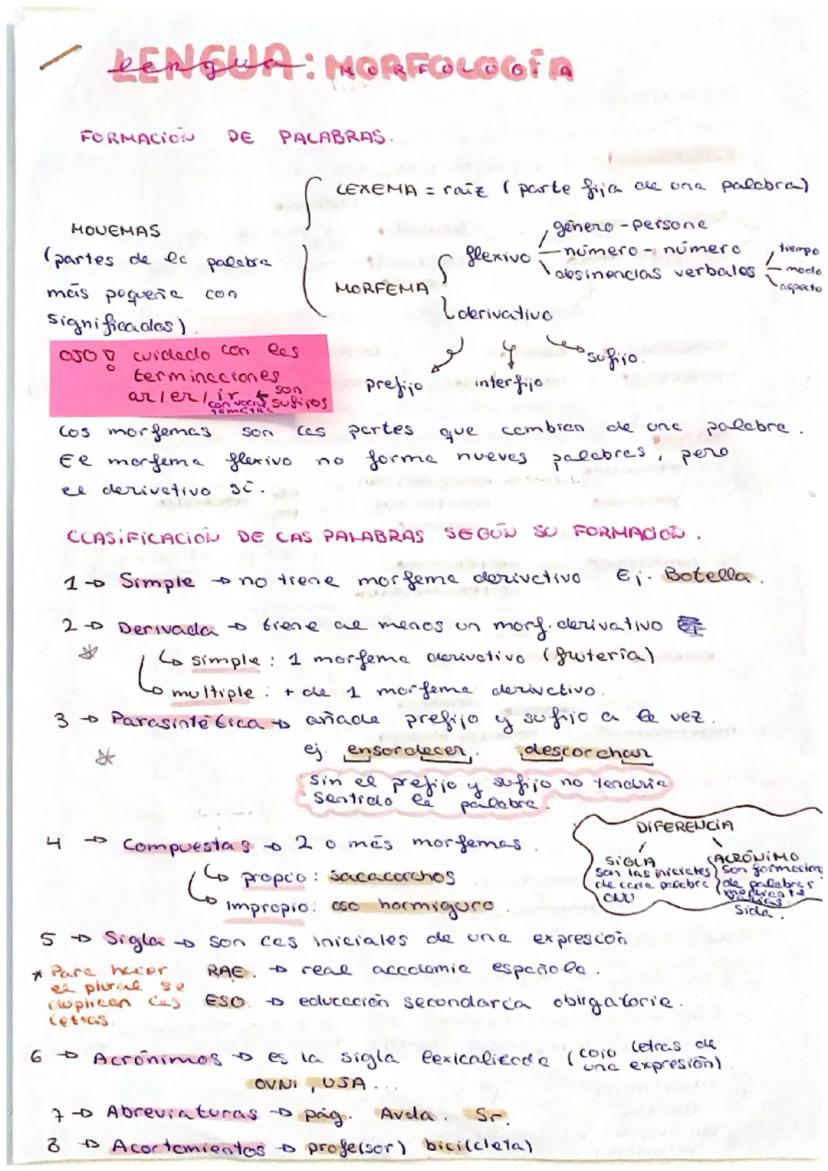 LENGUA: MORFOLOGÍA
FORMACIÓN DE PALABRAS.
MONEMAS
(partes de la palabra
más pequeña con
significados).
LEXEMA = raíz (parte fija de una palabra)
MORFEMA
flexivo
género - persona
número - número
desinencias verbales
tiempo
modo
aspecto
derivativo
prefijo
interfijo
sufijo.
OJO! cuidado con las
terminaciones
ar/er/ir son
con vocal temática sufijos
Los morfemas son las partes que cambian de una palabra.
El morfema flexivo no forma nuevas palabras, pero
el derivativo sí.
CLASIFICACIÓN DE LAS PALABRAS SEGÚN SU FORMACIÓN.
1 → Simple → no tiene morfema derivativo Ej. Botella.
2 → Derivada → tiene al menos un morf. derivativo
↳ simple: 1 morfema derivativo (frutería)
↳ multiple: + de 1 morfema derivativo.
3 → Parasintética → añade prefijo y sufijo a la vez.
ej. ensordecer. descorchar
Sin el prefijo y sufijo no tendría
sentido la palabra.
4 → Compuestas → 2 o más morfemas.
↳ propio: sacacorchos
↳ impropio: oso hormiguero.
DIFERENCIA
SIGLA
son las iniciales
de cada palabra
ONU
ACRÓNIMO
son formación
de palabras
Sida.
5 → Sigla → son las iniciales de una expresión
RAE. → real academia española.
ESO. → educación secundaria obligatoria.
* Para hacer
el plural se
duplican las
letras.
6 → Acrónimos → es la sigla lexicalizada (cojo letras de
una expresión)
OVNI, UJA...
7 → Abreviaturas → pág. Avda. Sr.
8 → Acortamientos → profe(sor) bici(cleta)